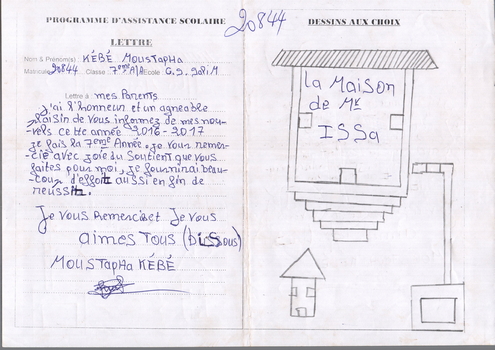 PROGRAMME D'ASSISTANCE SCOLAIRE
20844
DESSINS AUX CHOIX
LETTRE
Nom & Prénom(s) : KÉBÉ MOUSTAPHA
Matricule 20844 Classe : 7ème A/A Ecole : G.S.
Lettre à : mes Parents
J'ai l'honneur et un agneable
Plaisin de Vous informez de mes nou-
vels cette année 2016-2017
je fais la 7eme Année. Je vous remer-
cie avec joie du Soutient que vous
faites pour moi, je fournirai beau-
coup d'effort aussi en fin de
reussir.
Je vous Remerciset Je vous
aimes Tous (bissous)
MOUSTAPHA KÉBÉ
La Maison
de Mr
ISSa